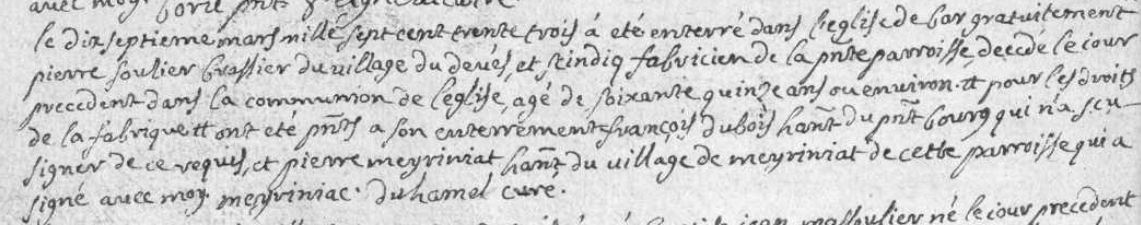 avec moy. borie
le dixseptieme mars mille sept cent trente trois á eté enterré dans l'eglise de bar gratuitement
pierre soulier brassier du village du deués, et scindiq fabricien de la pnte parroisse, decedé le iour
precedent dans la communion de l'eglise, agé de soixante quinze ans ou environ. tt pour les droits
de la fabrique tt ont eté pnts a son enterrement françois dubois hant du pnt bourg qui n'a scu
signer de ce requis, et pierre meyriniat hant du village de meyriniat de cette parroisse qui a
signé avec moy. meyriniac. duhamel curé.
jean massoulier né le iour precedent